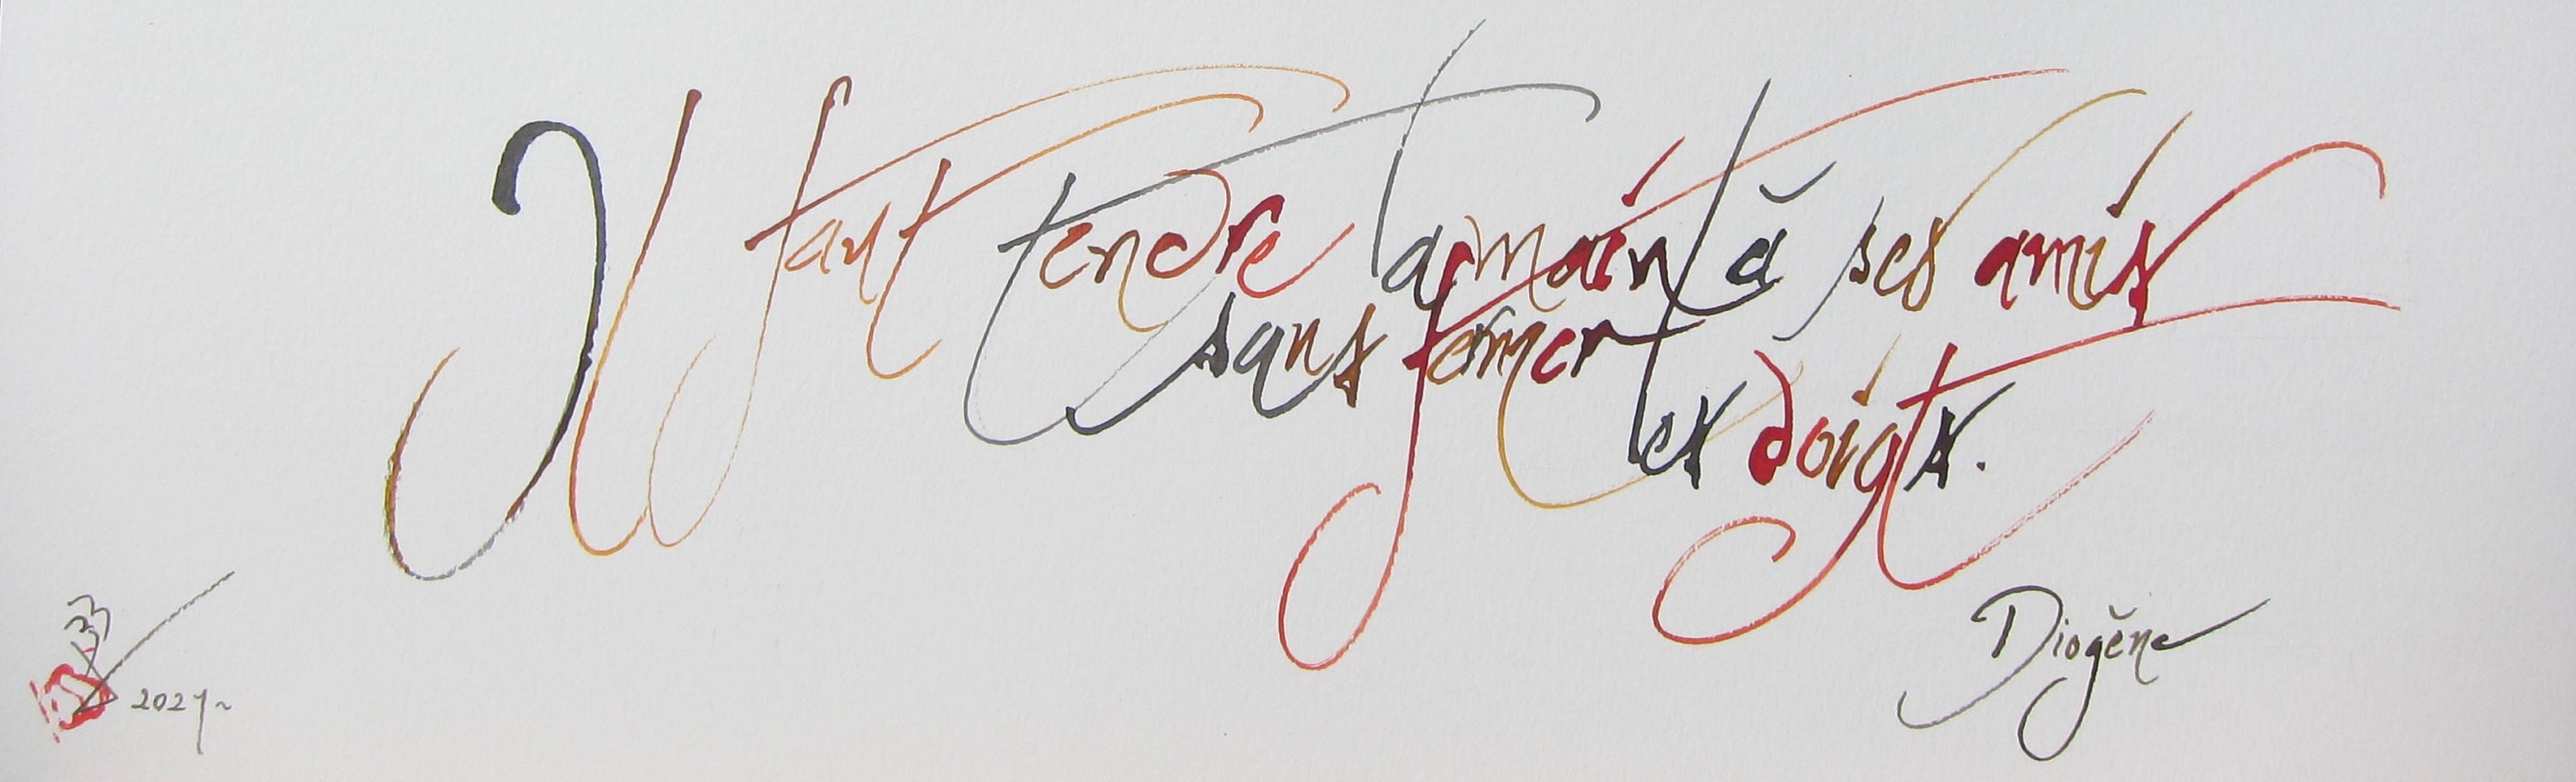 Il faut tendre la main à ses amis
sans fermer
les doigts.
Diogène